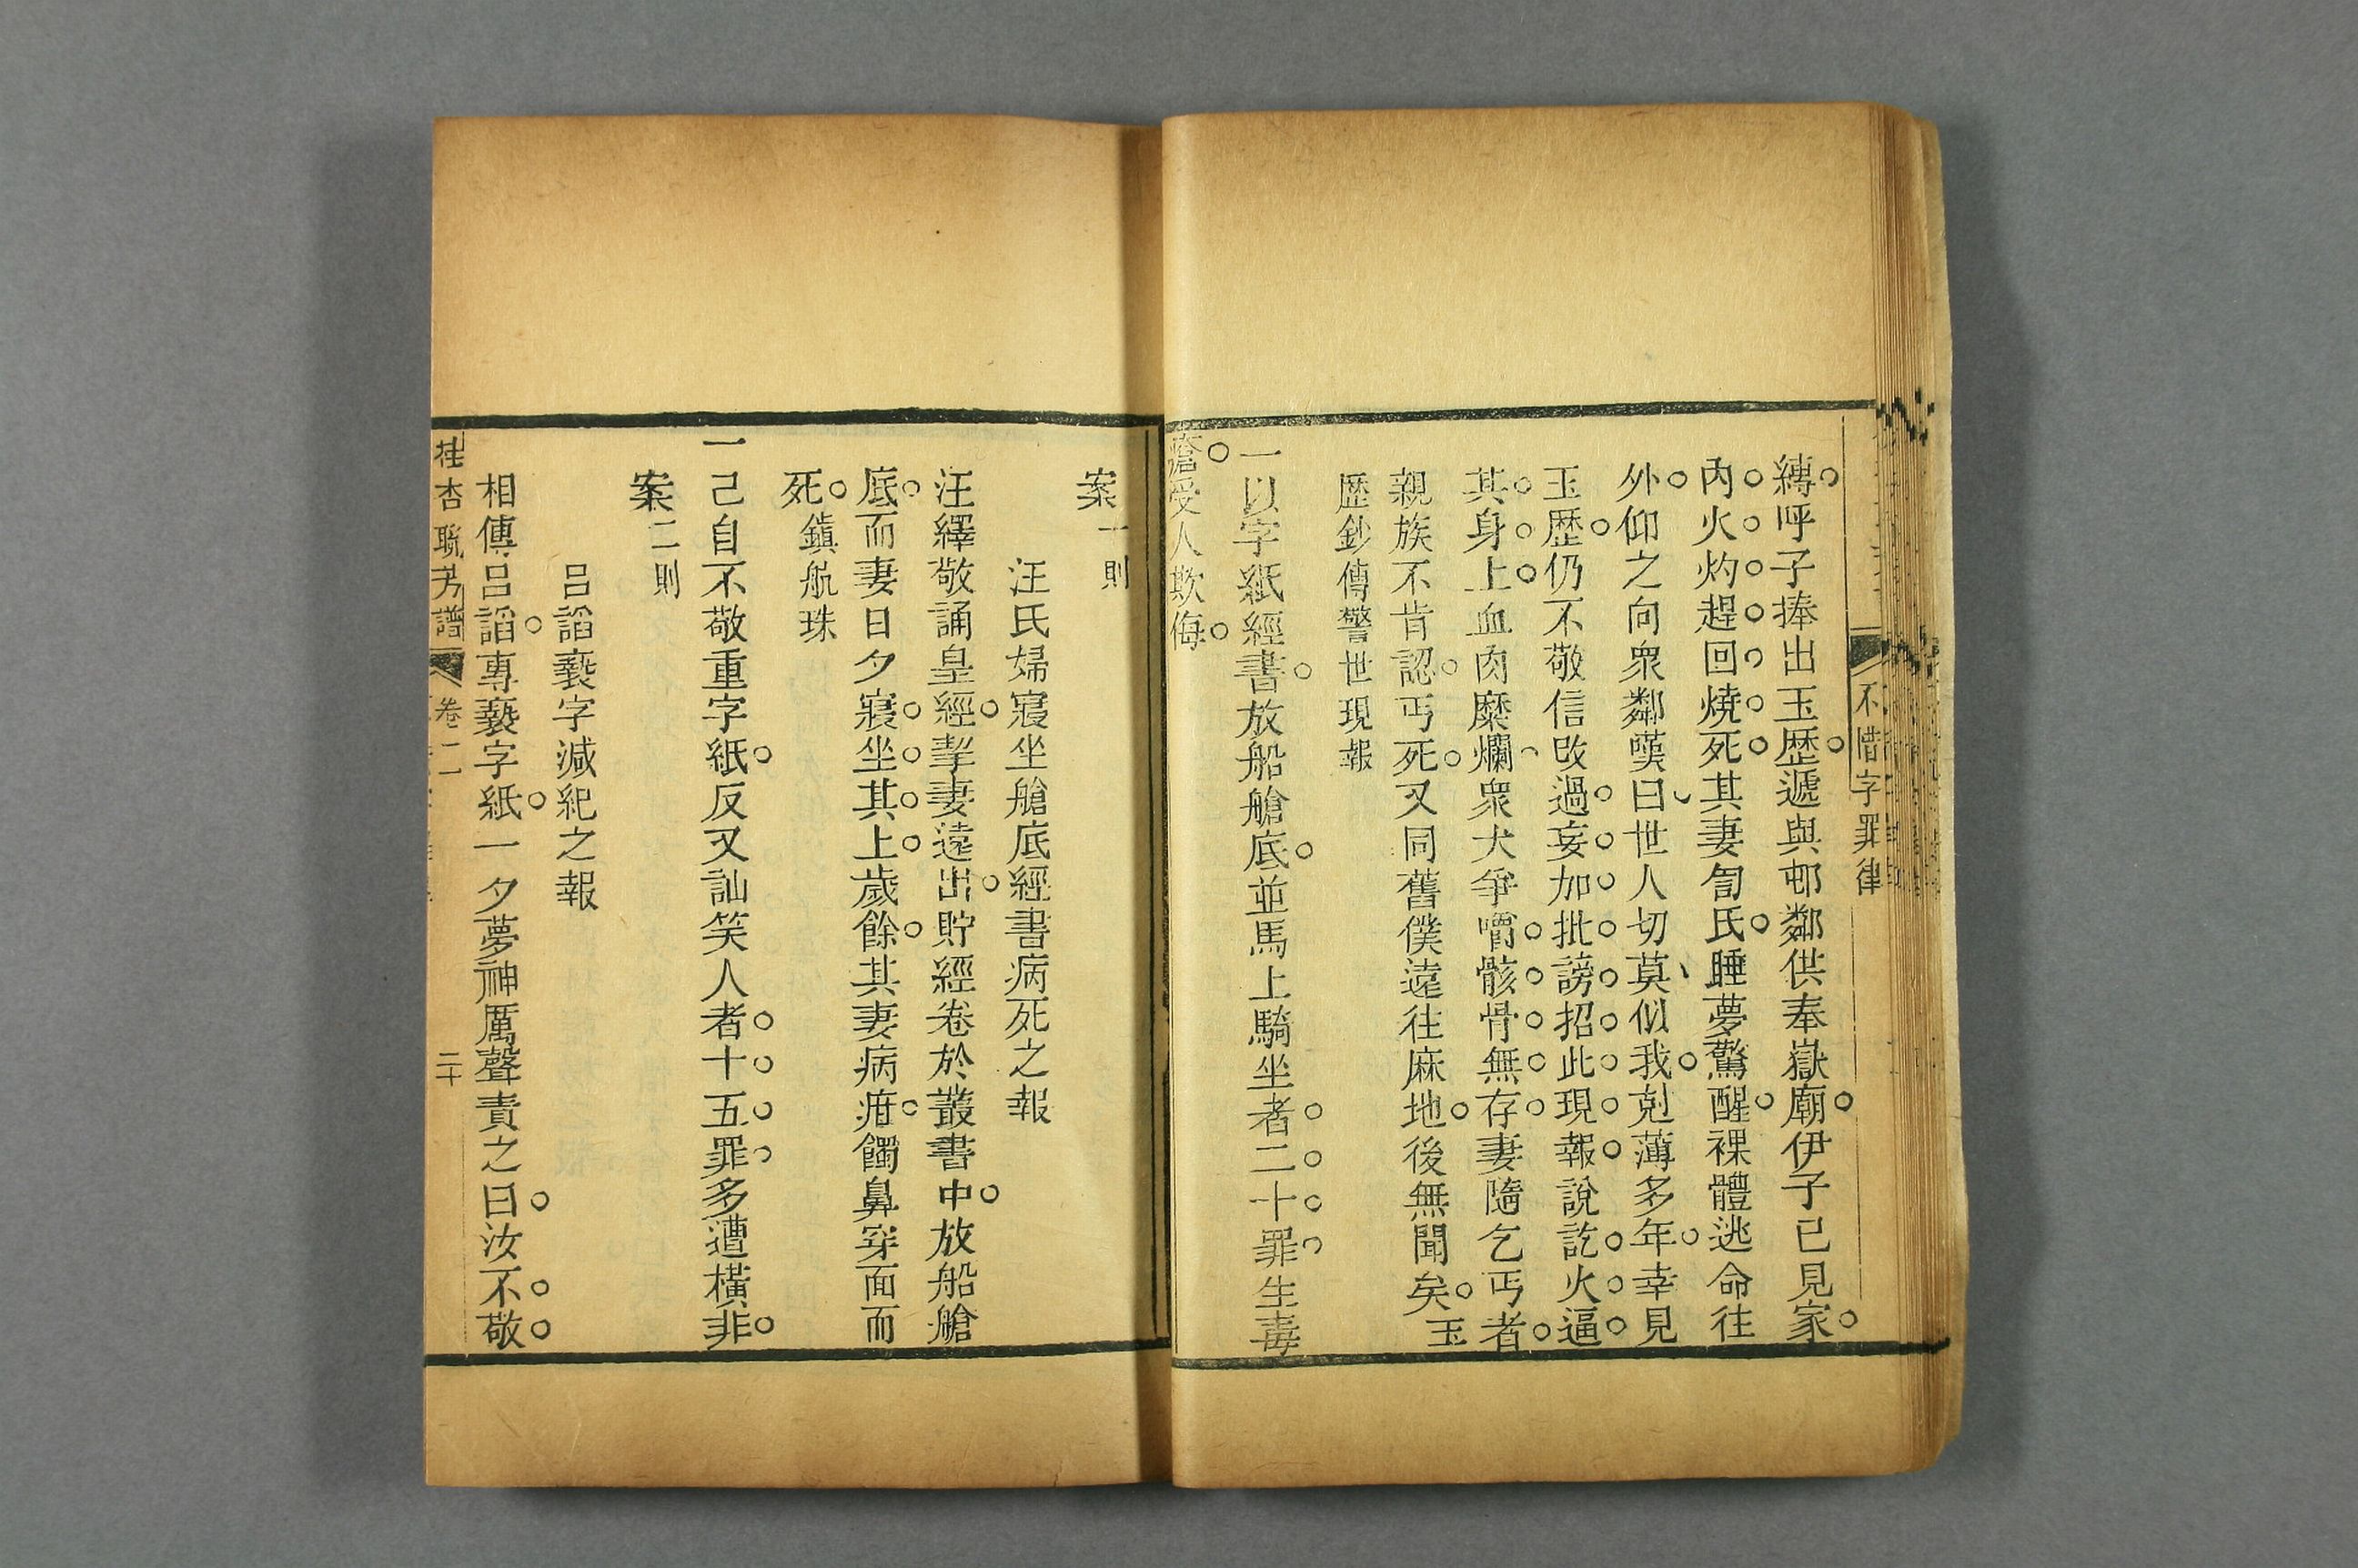 不惜字罪律
縛呼子捧出玉歷遞與邨鄰供奉嶽廟伊子已見家
內火灼趕回燒死其妻訇氏睡夢驚醒裸體逃命往
外仰之向衆鄰嘆曰世人切莫似我剋薄多年幸見
玉歷仍不敬信改過妄加批謗招此現報說訖火逼
其身上血肉糜爛衆犬爭嚼骸骨無存妻隨乞丐者
親族不肯認丐死又同舊僕遠往麻地後無聞矣玉
歷鈔傳警世現報
一以字紙經書放船艙底並馬上騎坐者二十罪生毒
瘡受人欺侮
案一則
汪氏婦寢坐艙底經書病死之報
汪繹敬誦皇經挈妻遠出貯經卷於叢書中放船艙
底而妻日夕寢坐其上歲餘其妻病疳髑鼻穿面而
死鎮航珠
一己自不敬重字紙反又訕笑人者十五罪多遭橫非
案二則
呂謟褻字減紀之報
相傳呂謟專褻字紙一夕夢神厲聲責之曰汝不敬
桂杏聯芳譜
卷二
二十